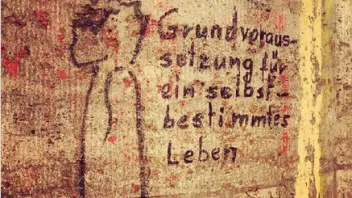 Grundvoraus-
setzung für
ein selbst-
bestimmtes
Leben